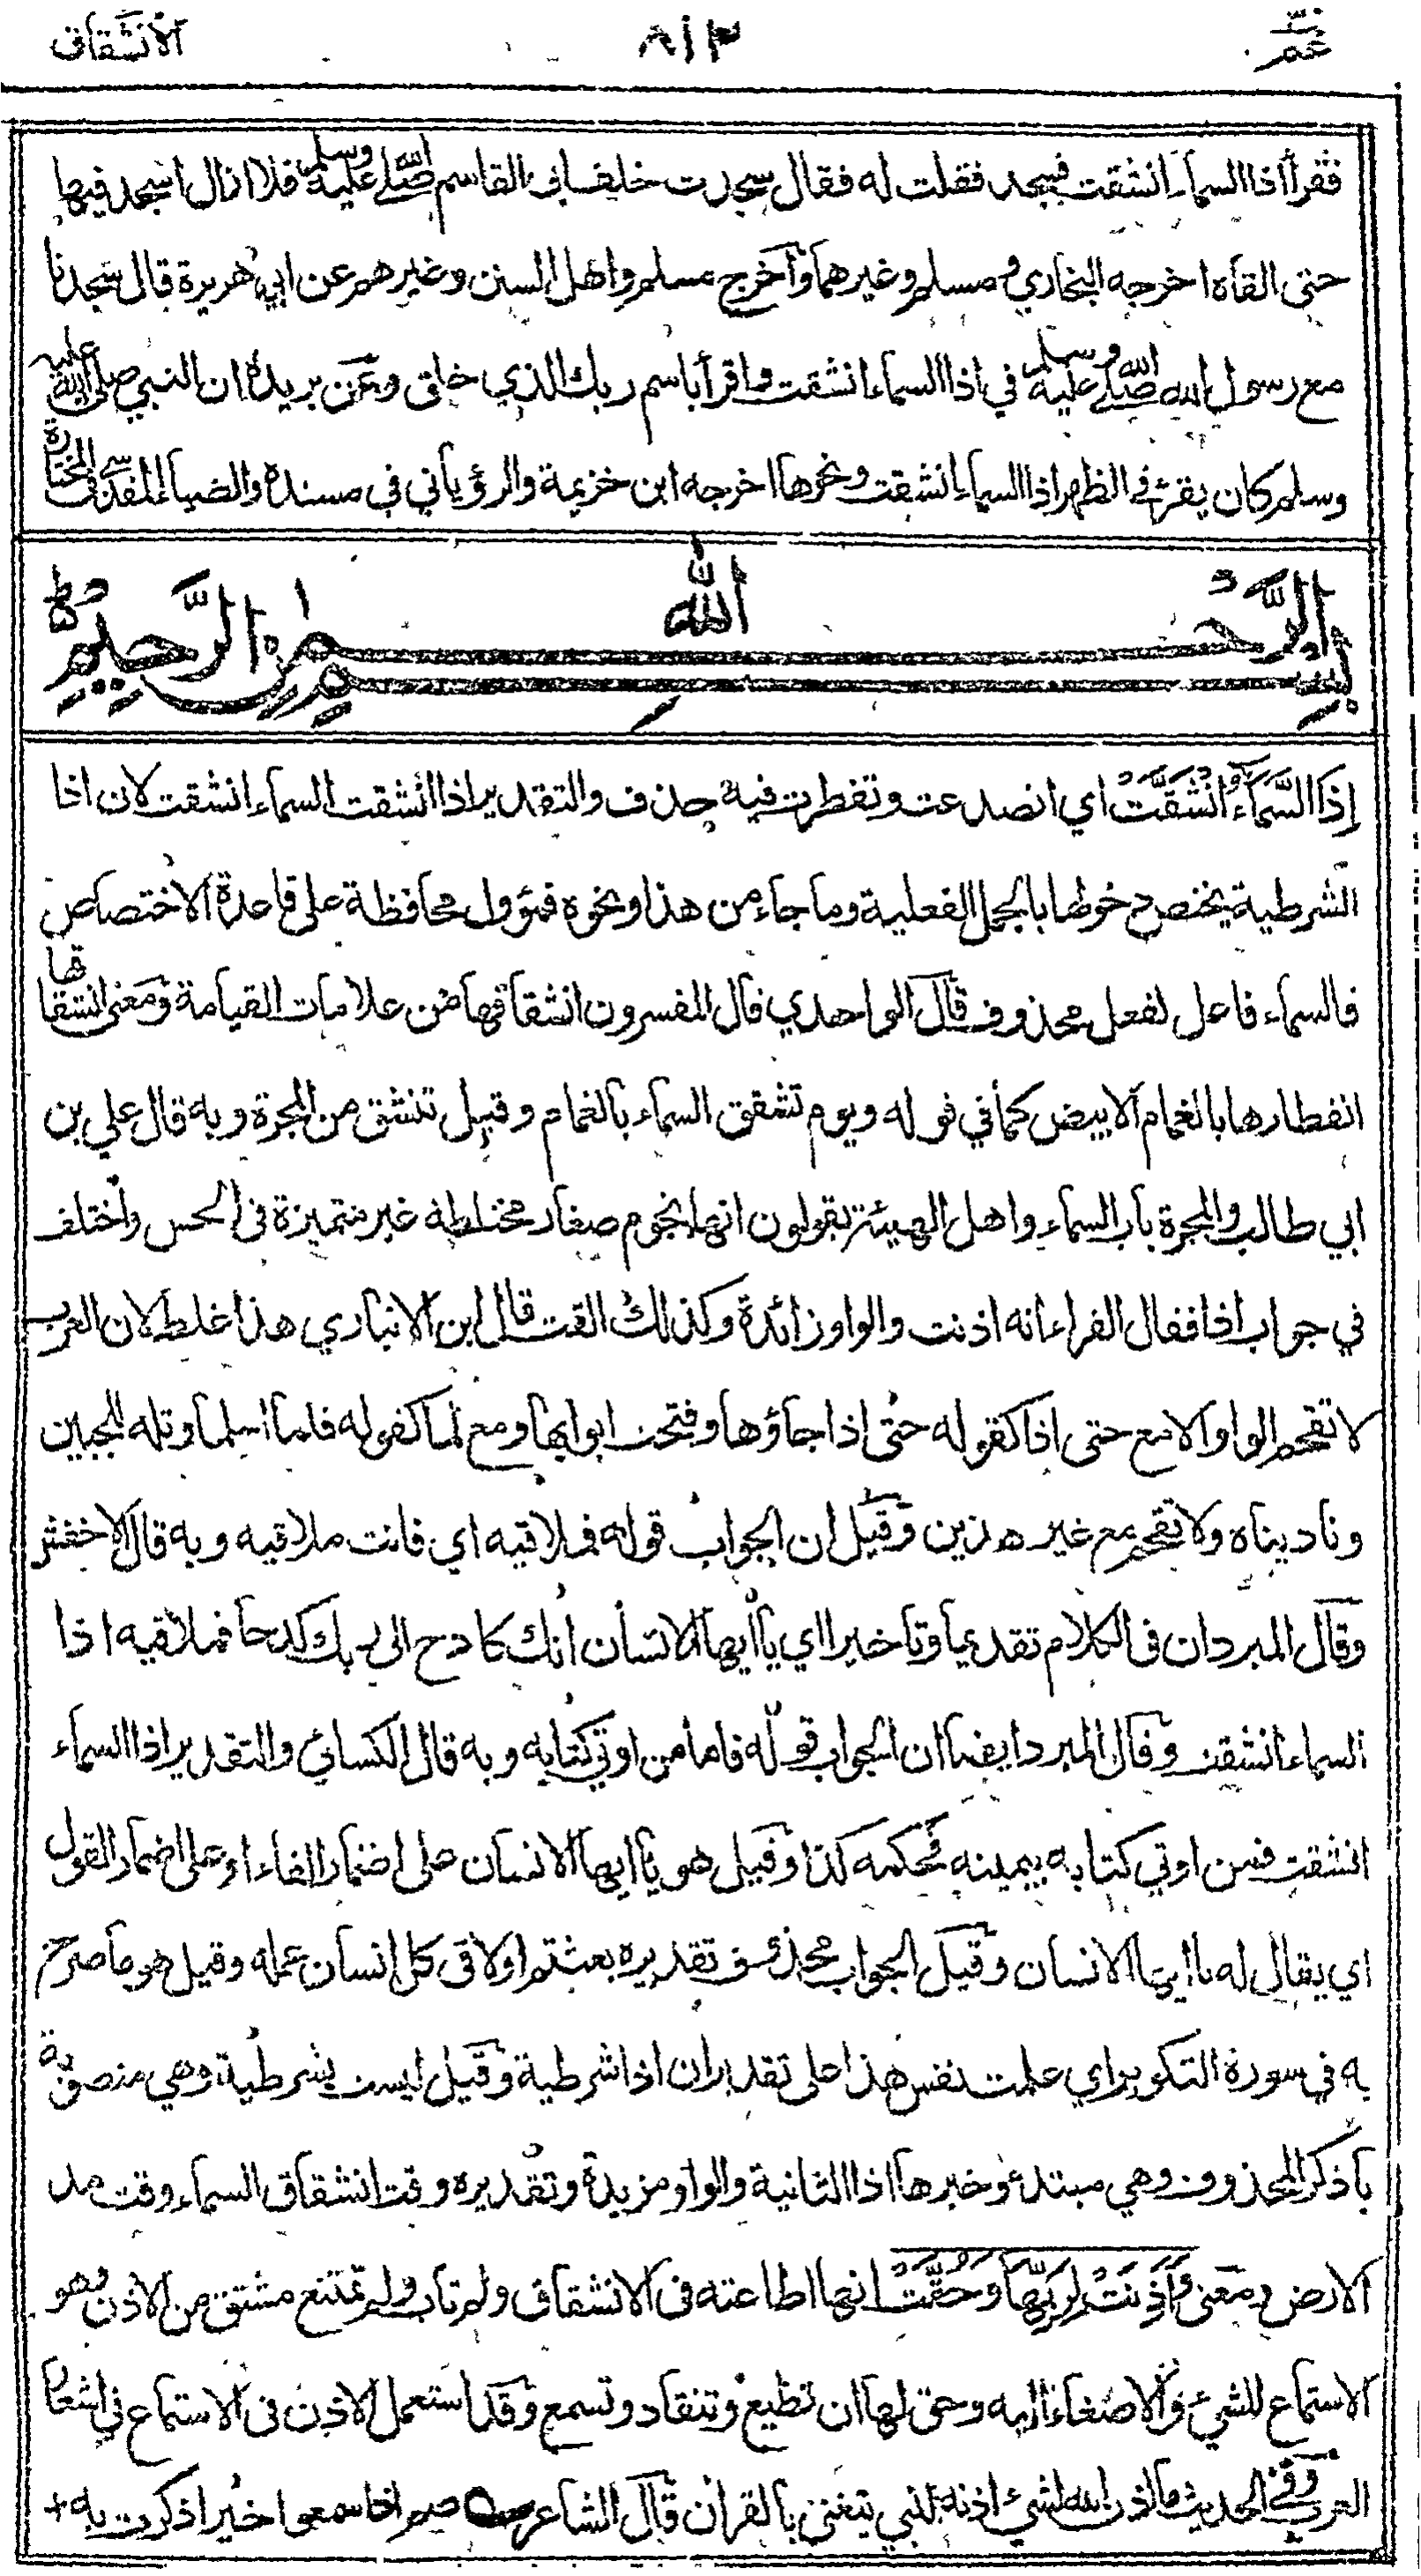 عم ٨١٣ الانشقاق
فقرأ اذا السماء انشقت فسجد فقلت له فقال سجدت خلف ابي القاسم صلى الله عليه وسلم فلا ازال اسجد فيها
حتى القاه اخرجه البخاري و مسلم وغيرهما وأخرج مسلم واهل السنن وغيرهم عن ابي هريرة قال سجدنا
مع رسول الله صلى الله عليه وسلم في اذا السماء انشقت واقرأ باسم ربك الذي خلق وعن بريدة ان النبي صلى الله عليه
وسلم كان يقرئ في الظهر اذا السماء انشقت ونحوها اخرجه ابن خزيمة والرؤياني في مسنده والضياء المقدسي في المختارة
بسم الله الرحمن الرحيم
إِذَا السَّمَاءُ انْشَقَّتْ اي انصدعت وتفطرت فيه حذف والتقدير اذا انشقت السماء انشقت لان اذا
الشرطية يختص دخولها بالجمل الفعلية وما جاء من هذا ونحوه فمؤول محافظة على قاعدة الاختصاص
فالسماء فاعل لفعل محذوف قال الواحدي قال المفسرون انشقاقها من علامات القيامة ومعنى انشقاقها
انفطارها بالغمام الابيض كما في قوله ويوم تشقق السماء بالغمام وقيل تنشق من المجرة وبه قال علي بن
ابي طالب والمجرة باب السماء واهل الهيئة يقولون انها نجوم صغار مختلطة غير متميزة في الحس واختلف
في جواب اذا فقال الفراء انه اذنت والواو زائدة وكذلك القت قال ابن الانباري هذا غلط لان العرب
لا تقحم الواو الا مع حتى اذا كقوله حتى اذا جاؤها وفتحت ابوابها ومع لما كقوله فلما اسلما وتله للجبين
وناديناه ولا تقحم مع غير هذين وقيل ان الجواب قوله فملاقيه اي فانت ملاقيه وبه قال الاخفش
وقال المبرد ان في الكلام تقديما وتاخيرا اي يا ايها الانسان انك كادح الى ربك كدحا فملاقيه اذا
السماء انشقت وقال المبرد ايضا ان الجواب قوله فاما من اوتي كتابه وبه قال الكسائي والتقدير اذا السماء
انشقت فمن اوتي كتابه بيمينه فحكمه كذا وقيل هو يا ايها الانسان على اضمار الفاء او على اضمار القول
اي يقال له يا ايها الانسان وقيل الجواب محذوف تقديره بعثتم او لاقى كل انسان عمله وقيل هو ما صرح
به في سورة التكوير اي علمت نفس هذا على تقدير ان اذا شرطية وقيل ليست بشرطية وهي منصوبة
باذكر المحذوف وهي مبتدء وخبرها اذا الثانية والواو مزيدة وتقديره وقت انشقاق السماء وقت مد
الارض ومعنى وَأَذِنَتْ لِرَبِّهَا وَحُقَّتْ انها اطاعته في الانشقاق ولم تاب ولم تمتنع مشتق من الاذن وهو
الاستماع للشيء والاصغاء اليه وحق لها ان تطيع وتنقاد وتسمع وقد استعمل الاذن في الاستماع في اشعار
العرب وفي الحديث ما اذن الله لشيء اذنه لنبي يتغنى بالقران قال الشاعر صم اذا سمعوا خيرا ذكرت به +